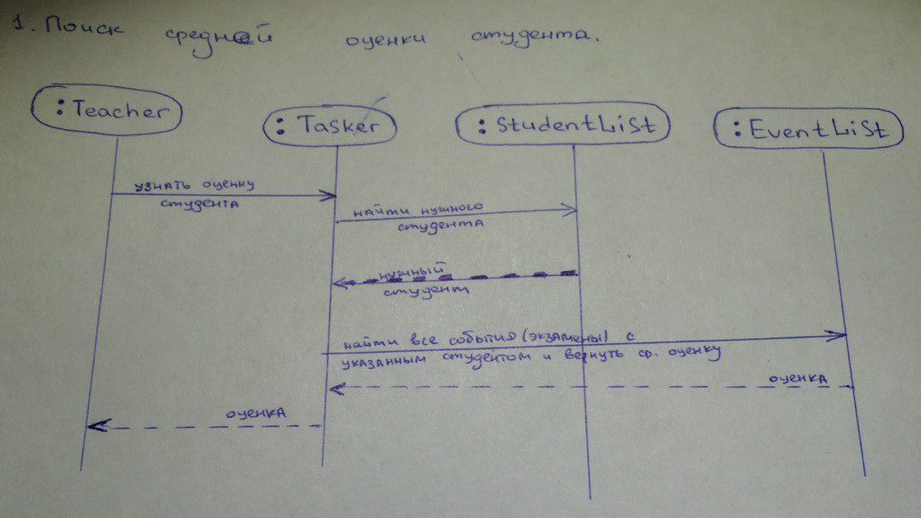 1. Поиск средней оценки студента.
:Teacher
:Tasker
:StudentList
:EventList
узнать оценку
студента
найти нужного
студента
нужный
студент
найти все события (экзамены) с
указанным студентом и вернуть ср. оценку
оценка
оценка